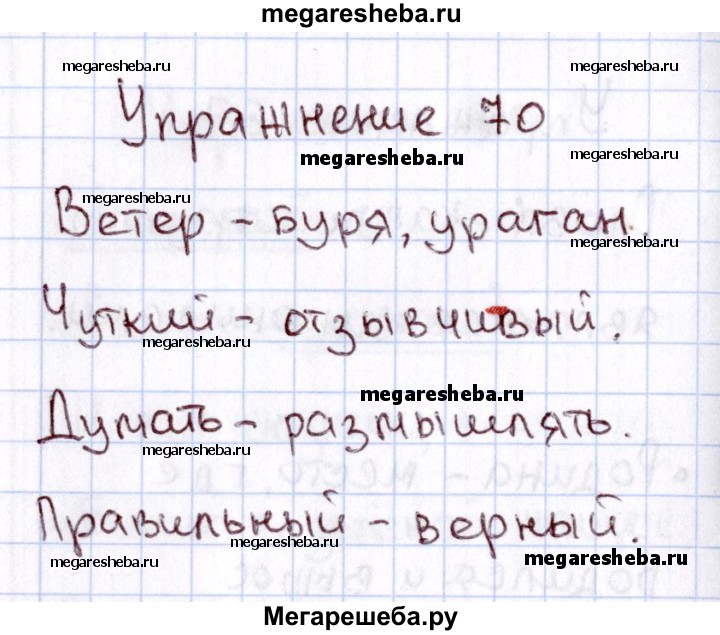 megaresheba.ru
megaresheba.ru megaresheba.ru
Упражнение 70
megaresheba.ru megaresheba.ru
megaresheba.ru
Ветер - буря, ураган.
megaresheba.ru
Чуткий - отзывчивый.
megaresheba.ru
megaresheba.ru
Думать - размышлять.
megaresheba.ru
Правильный - верный.
megaresheba.ru
megaresheba.ru megaresheba.ru
Мегарешеба.ру